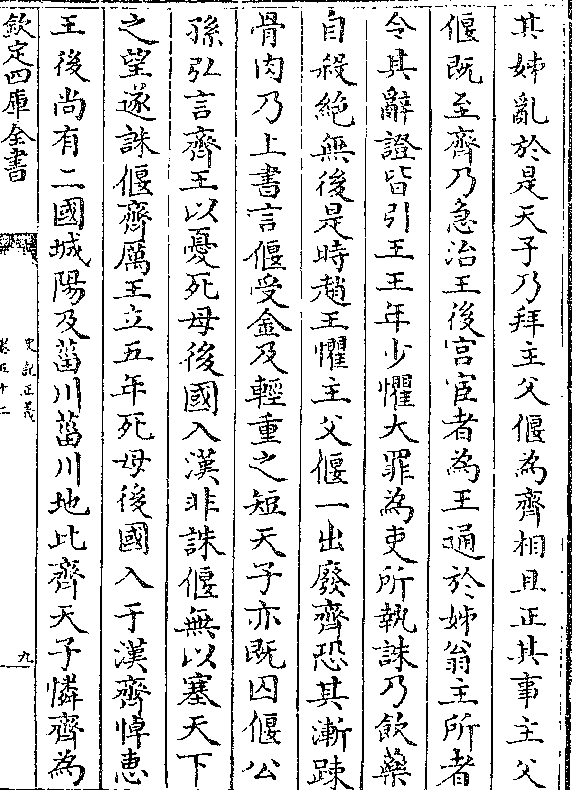 其姊亂於是天子乃拜主父偃為齊相且正其事主父
偃既至齊乃急治王後宮宦者為王通於姊翁主所者
令其辭證皆引王王年少懼大罪為吏所執誅乃飲藥
自殺絶無後是時趙王懼主父偃一出廢齊恐其漸踈
骨肉乃上書言偃受金及輕重之短天子亦既囚偃公
孫弘言齊王以憂死毋後國入漢非誅偃無以塞天下
之望遂誅偃齊厲王立五年死毋後國入于漢齊悼惠
王後尚有二國城陽及菑川菑川地比齊天子憐齊為
欽定四庫全書
史記正義
卷五十二
九